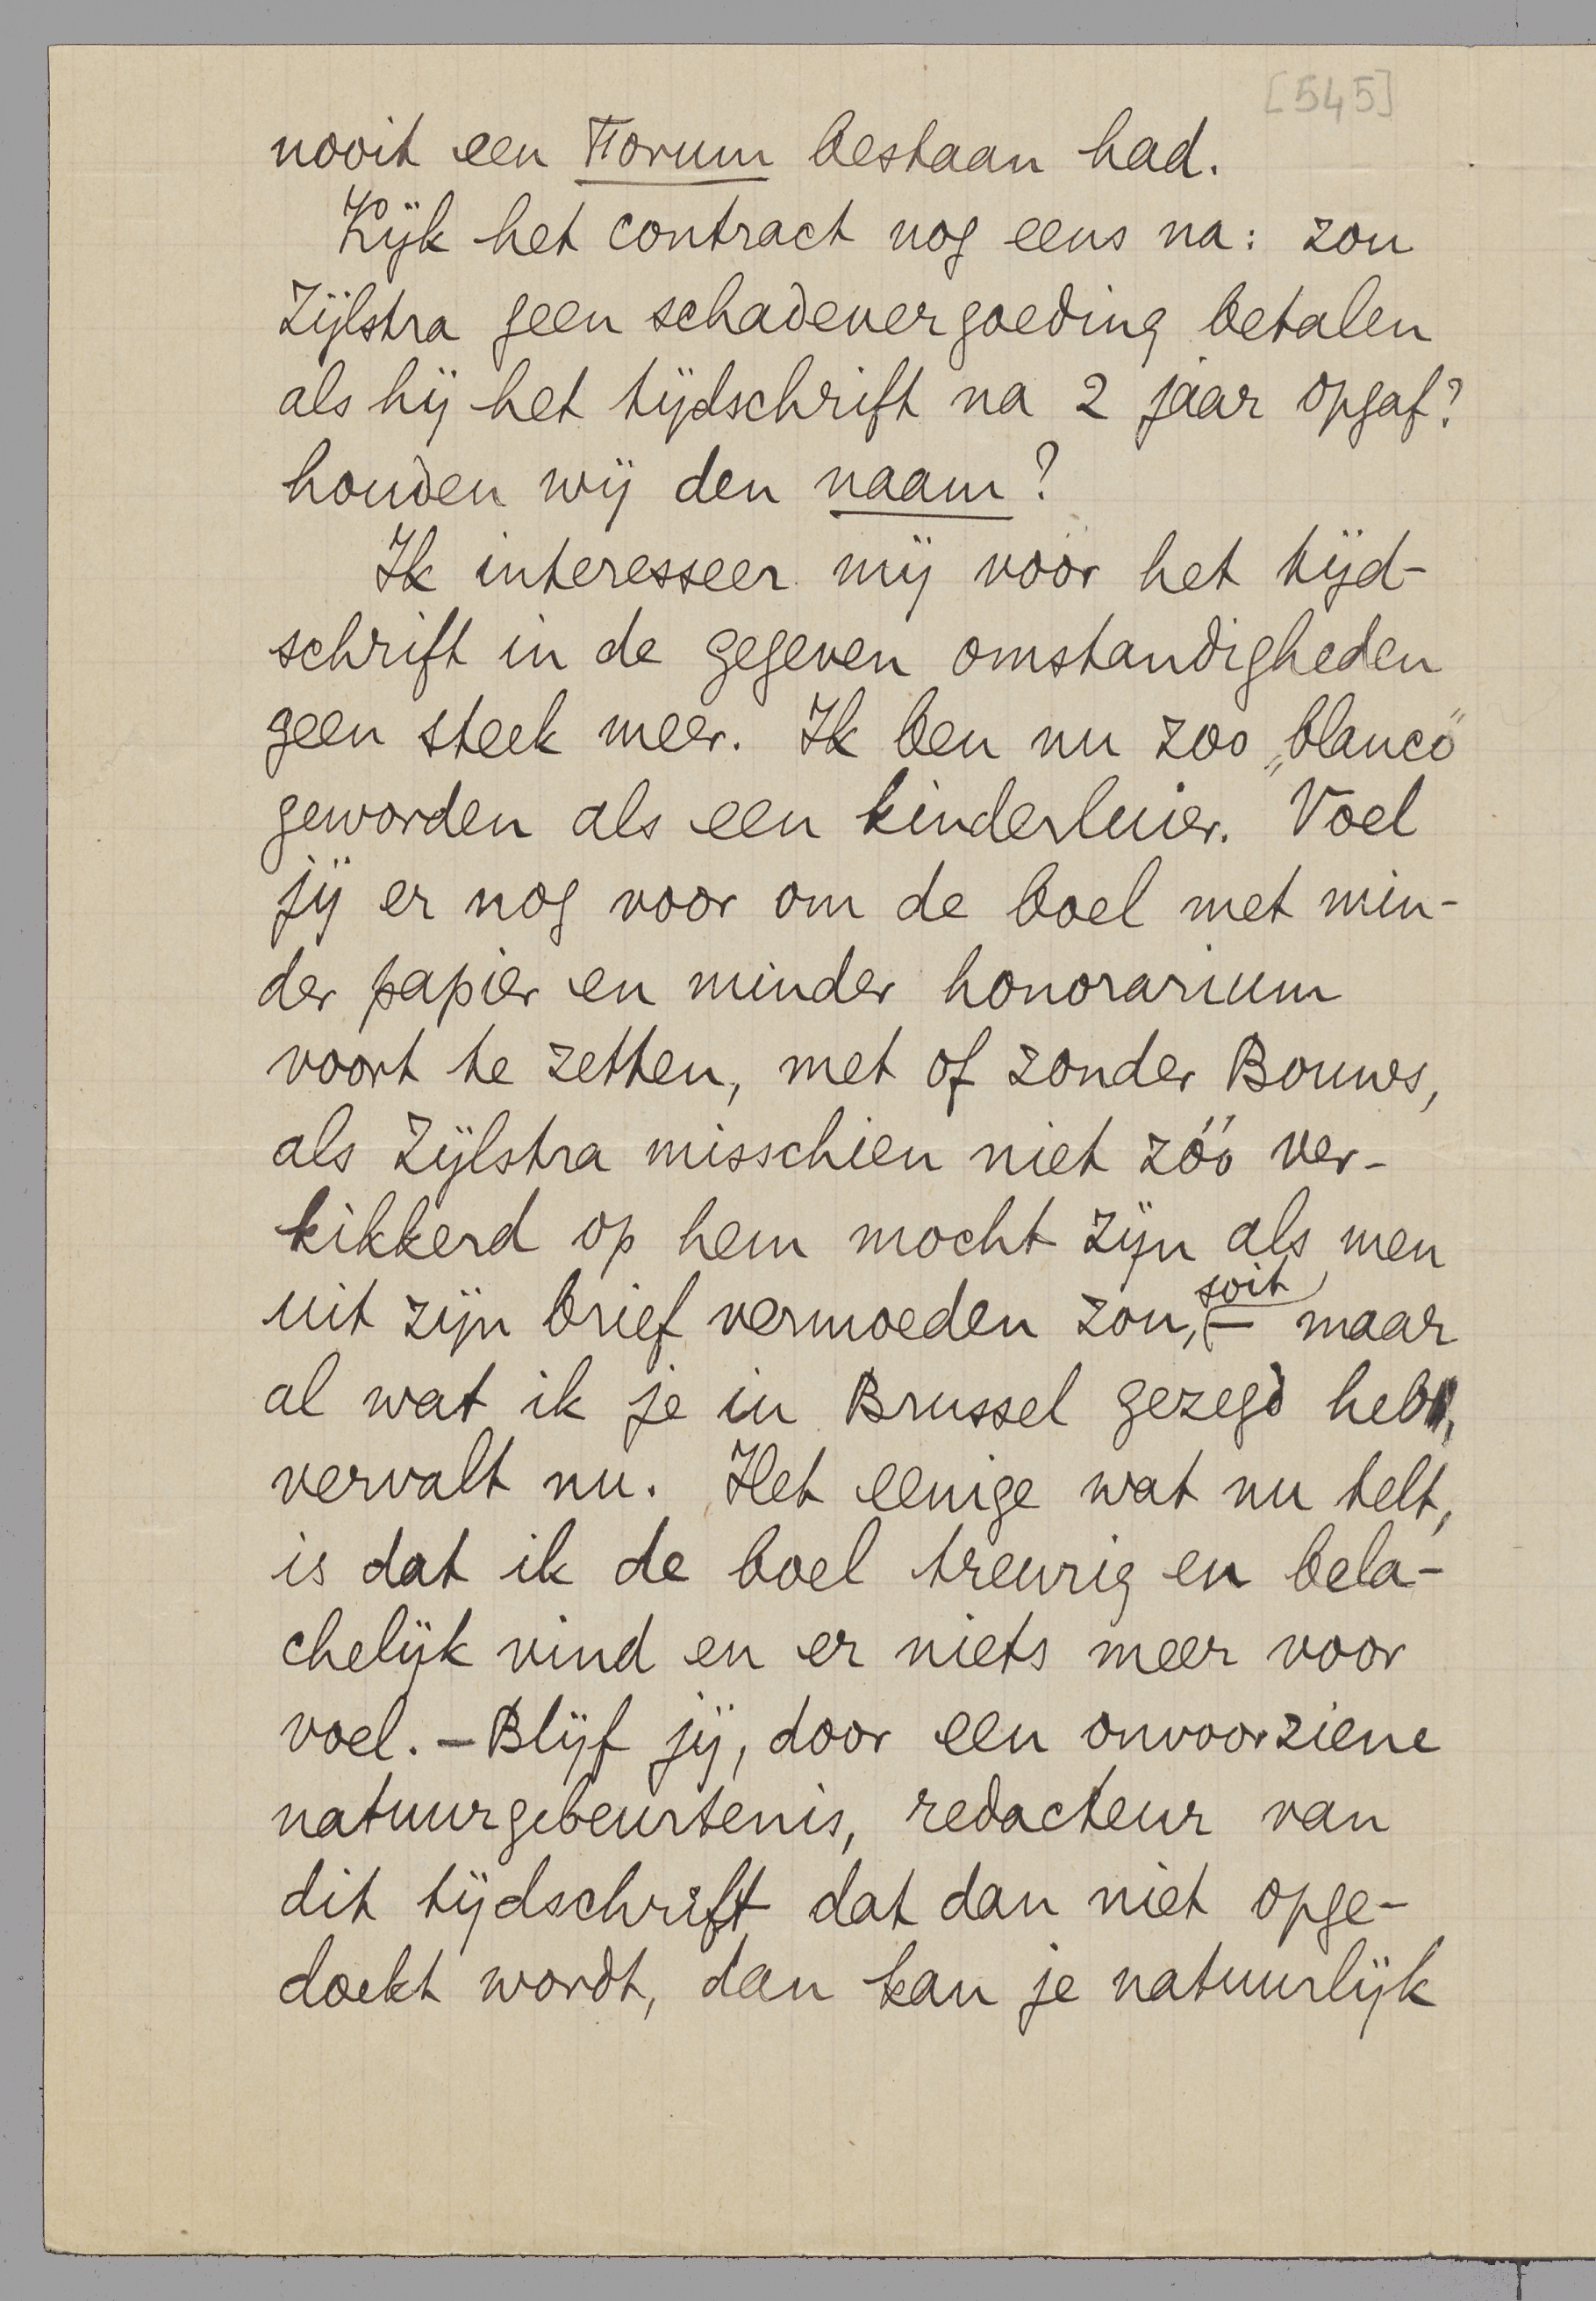 [545]
nooit een Forum bestaan had.
Kijk het contract nog eens na: zou
Zijlstra geen schadevergoeding betalen
als hij het tijdschrift na 2 jaar opgaf?
houden wij den naam?
Ik interesseer mij voor het tijd-
schrift in de gegeven omstandigheden
geen steek meer. Ik ben nu zoo „blanco"
geworden als een kinderluier. Voel
jij er nog voor om de boel met min-
der papier en minder honorarium
voort te zetten, met of zonder Bouws,
als Zijlstra misschien niet zóó ver-
kikkerd op hem mocht zijn als men
uit zijn brief vermoeden zou, soit, – maar
al wat ik je in Brussel gezegd heb,
vervalt nu. Het eenige wat nu telt,
is dat ik de boel treurig en bela-
chelijk vind en er niets meer voor
voel. – Blijf jij, door een onvoorziene
natuurgebeurtenis, redacteur van
dit tijdschrift dat dan niet opge-
doekt wordt, dan kan je natuurlijk